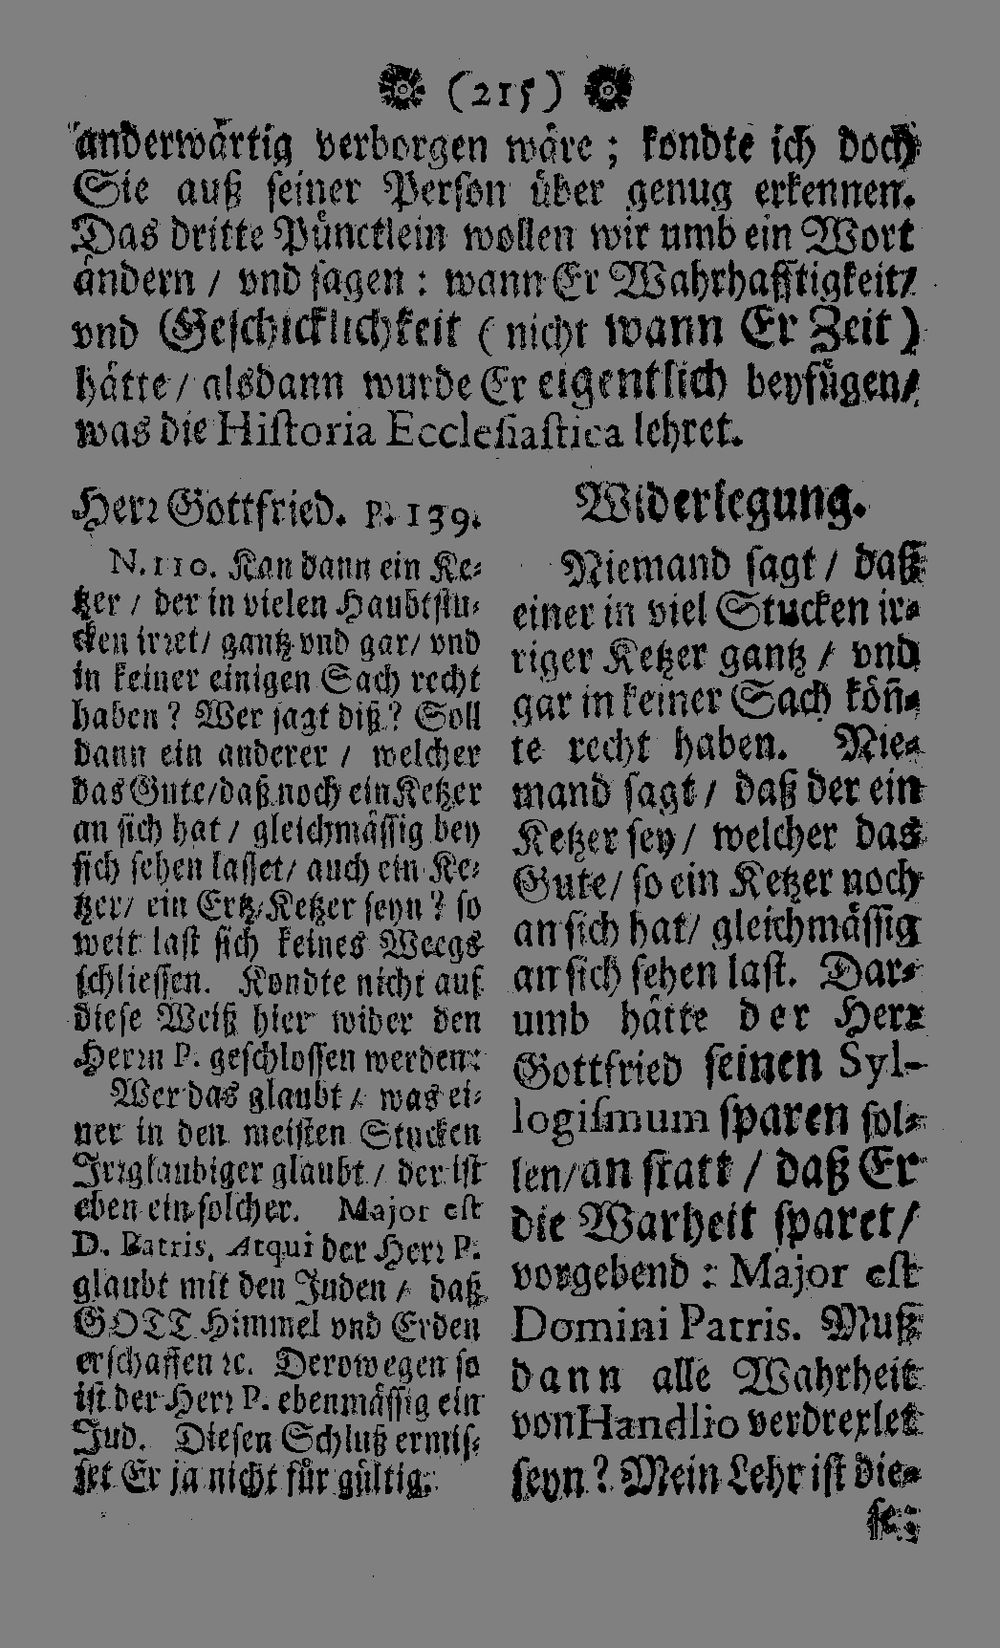 (215)
anderwärtig verborgen wäre; kondte ich doch
Sie auß seiner Person über genug erkennen.
Das dritte Pünctlein wollen wir umb ein Wort
ändern / vnd sagen: wann Er Wahrhafftigkeit /
vnd Geschicklichkeit ( nicht wann Er Zeit )
hätte / alsdann wurde Er eigentlich beyfügen /
was die Historia Ecclesiastica lehret.
Herr Gottfried. p. 139.
N. 110. Kan dann ein Ke-
tzer / der in vielen Haubtstu-
cken irret / gantz vnd gar / vnd
in keiner einigen Sach recht
haben? Wer sagt diß? Soll
dann ein anderer / welcher
das Gute / daß noch ein Ketzer
an sich hat / gleichmässig bey
sich sehen lasset / auch ein Ke-
tzer / ein Ertz-Ketzer seyn? so
weit last sich keines Weegs
schliessen. Kondte nicht auf
diese Weiß hier wider den
Herrn P. geschlossen werden:
Wer das glaubt / was ei-
ner in den meisten Stucken
Irrglaubiger glaubt / der ist
eben ein solcher. Major est
D. Patris. Atqui der Herr P.
glaubt mit den Juden / daß
GOTT Himmel vnd Erden
erschaffen ꝛc. Derowegen so
ist der Herr P. ebenmässig ein
Jud. Diesen Schluß ermis-
set Er ja nicht für gültig.
Widerlegung.
Niemand sagt / daß
einer in viel Stucken ir-
riger Ketzer gantz / vnd
gar in keiner Sach kön̄-
te recht haben. Nie-
mand sagt / daß der ein
Ketzer sey / welcher das
Gute / so ein Ketzer noch
an sich hat / gleichmässig
an sich sehen last. Dar-
umb hätte der Herr
Gottfried seinen Syl-
logismum sparen sol-
len / an statt / daß Er
die Warheit sparet /
vorgebend: Major est
Domini Patris. Muß
dann alle Wahrheit
von Handlio verdrexlet
seyn? Mein Lehr ist die-
se: